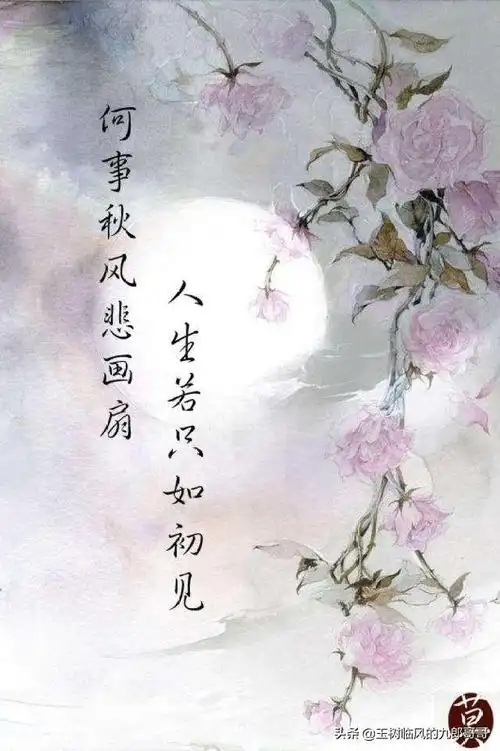 人生若只如初见
何事秋风悲画扇
头条 @玉树临风的九郎哥哥